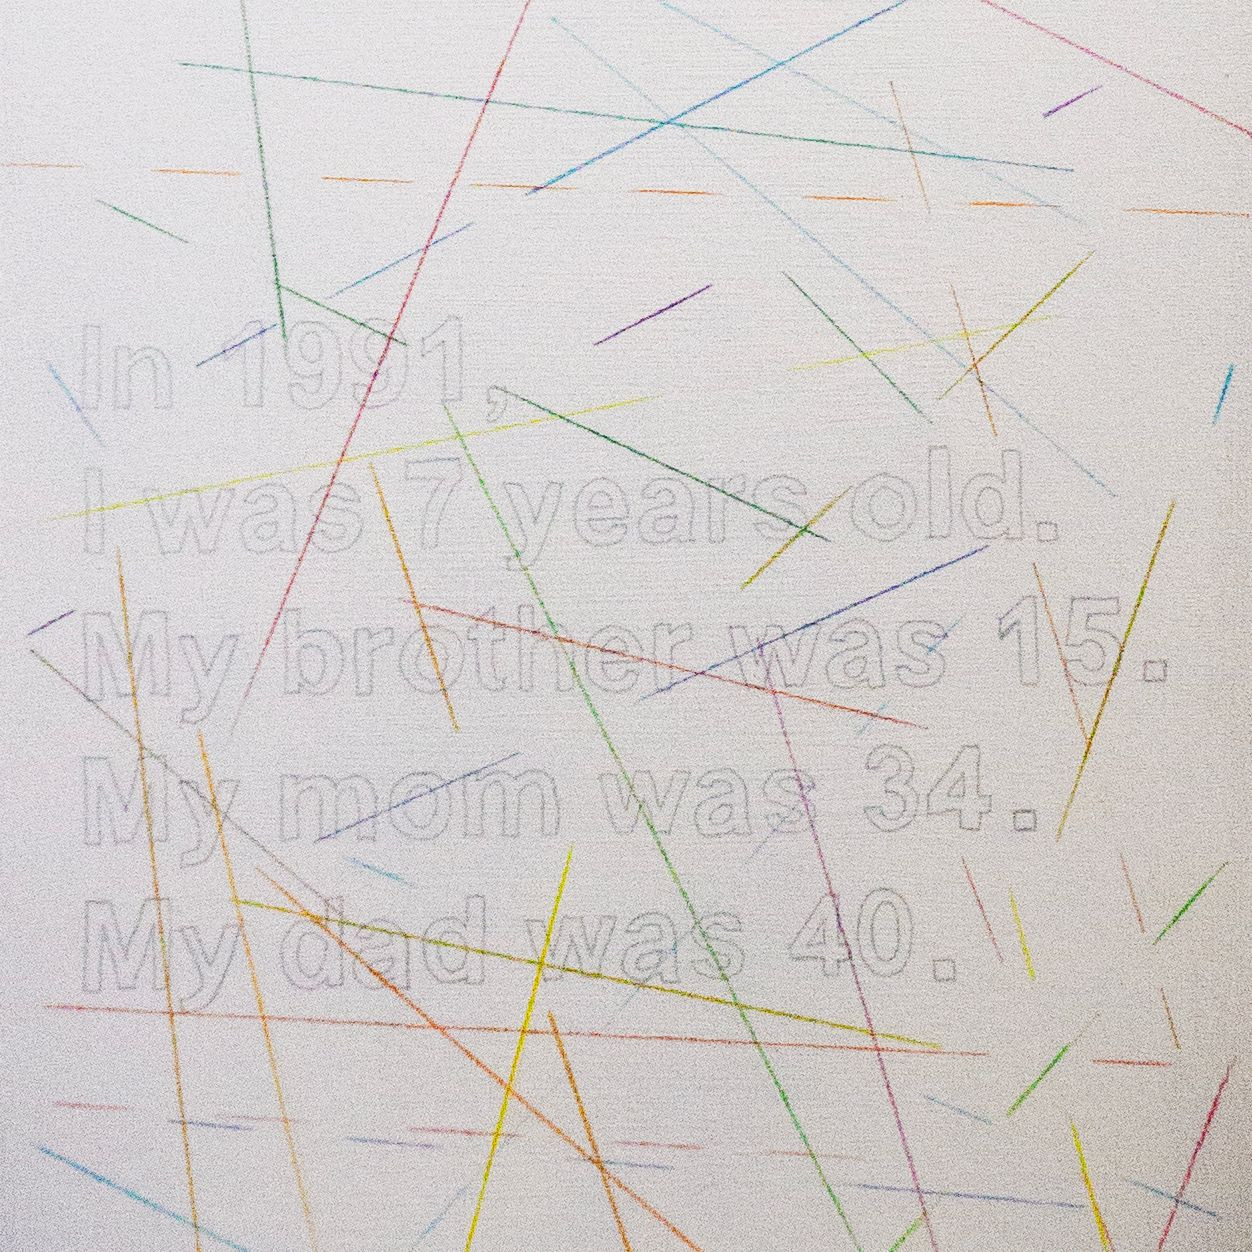 In 1991,
I was 7 years old.
My brother was 15.
My mom was 34.
My dad was 40.